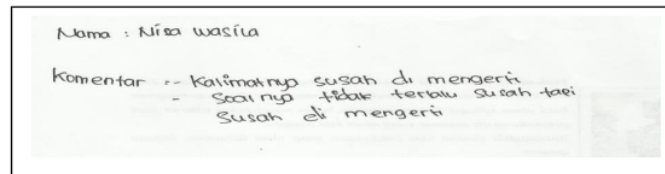 Nama : Nisa wasila
Komentar :- Kalimatnya susah di mengerti
- Soal nya tidak terlalu susah tapi
susah di mengerti